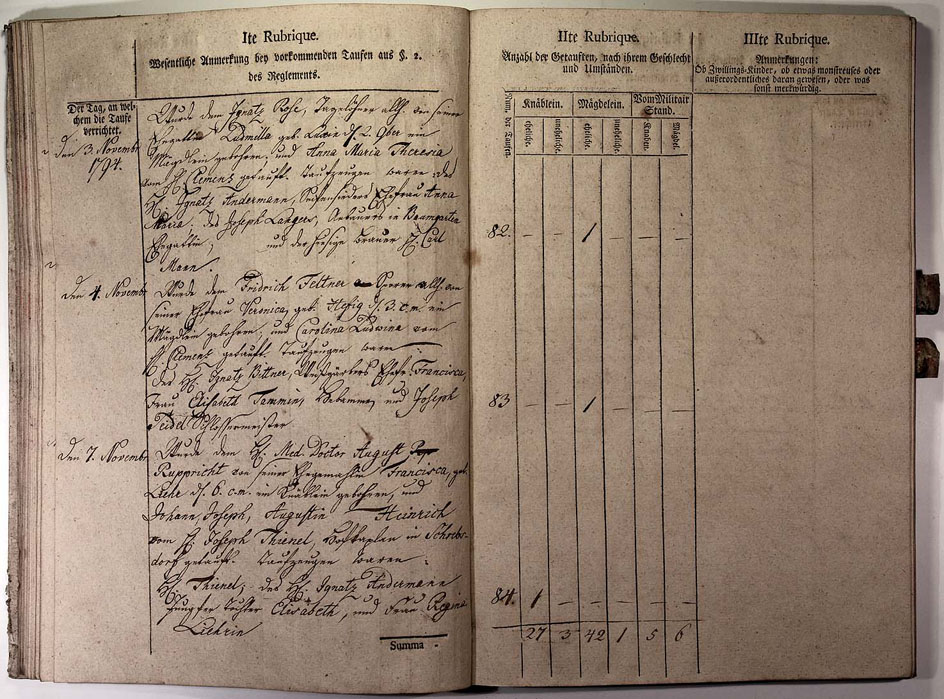 Ite Rubrique.
Wesentliche Anmerkung bey vorkommenden Taufen aus §. 2.
des Reglements.
Der Tag, an wel-
chem die Taufe
verrichtet.
den 3. Novembr
1794.
Wurde dem Ignatz Rose, Tagelöhner allh. von seiner
Ehegattin Ludmilla geb. d. 2. ein
Mägdlein gebohren, und Anna Maria Theresia
vom H. Clemenz getauft. Taufzeugen waren: des
H. Ignatz Andermann, Seifensieders Ehefrau Anna
Maria. des Joseph Langers, in Baumgarten
Ehegattin, und der hiesige Brauer H. Carl
Mann.
den 4. Novembr
Wurde dem Fridrich Feltner allh. von
seiner Ehefrau Veronica, geb. Hefig d. 3. c.m. ein
Mägdlein gebohren, und Carolina Ludwina vom
H. Clemenz getauft. Taufzeugen waren
des H. Ignatz Bittner, Ehefr. Francisca,
Frau Elisabeth Tammin, Hebamme, und Joseph
Seidel Schlossermeister
den 7. Novembr
Wurde dem H. Med. Doctor August
Ruppricht von seiner Ehegemahlin Francisca, geb.
d. 6. c.m. ein Knäblein gebohren, und
Johann, Joseph, Augustin Heinrich
vom H. Joseph Thienel, Hofkaplan in
dorf getauft. Taufzeugen waren:
H. Thienel; des H. Ignatz Andermann
Jungfer Tochter Elisabeth, und Frau Regina
Liehrin
Summa
IIte Rubrique.
Anzahl der Getauften, nach ihrem Geschlecht
und Umständen.
Num. der Taufen.
Knäblein. Mägdelein. Vom Militair
Stand.
eheliche. uneheliche. eheliche. uneheliche. Knaben. Mägdel.
82. – – 1 – – –
83 – – 1 – – –
84. 1 – – – – –
27 3 42 1 5 6
IIIte Rubrique.
Anmerkungen:
Ob Zwillings-Kinder, ob etwas monstreuses oder
außerordentliches daran gewesen, oder was
sonst merkwürdig.